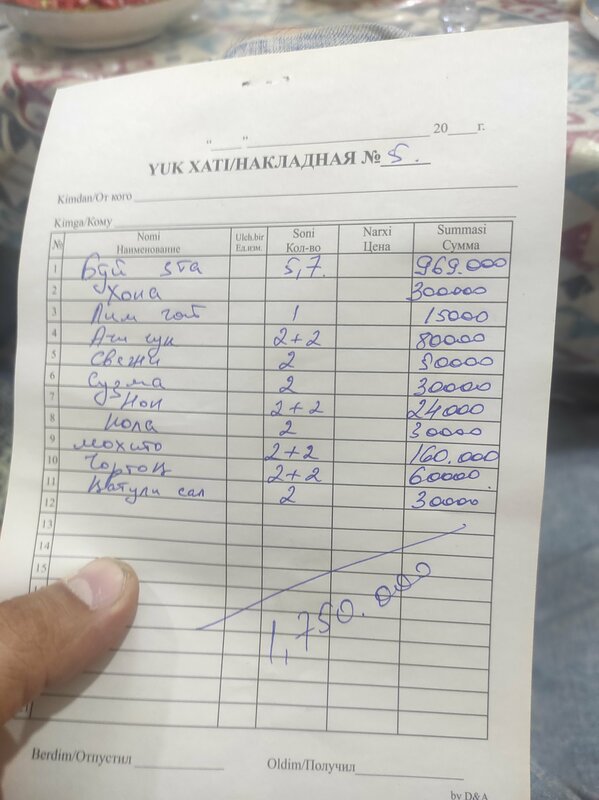 "____" ____ 20____г.
YUK XATI/НАКЛАДНАЯ № 5.
Kimdan/От кого
Kimga/Кому
№ Nomi Наименование Ulch.bir Ед.изм. Soni Кол-во Narxi Цена Summasi Сумма
1 Буй эта 5,7. 969.000
2 Хона 300000
3 Лим чой 1 15000
4 Ачи чук 2+2 80000
5 Свежи 2 50000
6 Сузма 2 30000
7 Нон 2+2 24000
8 Кола 2 30000
9 Мохито 2+2 160.000
10 Чорток 2+2 60000
11 Катули сал 2 30000
12
13
14
15
1,750.000
Berdim/Отпустил
Oldim/Получил
by D&A